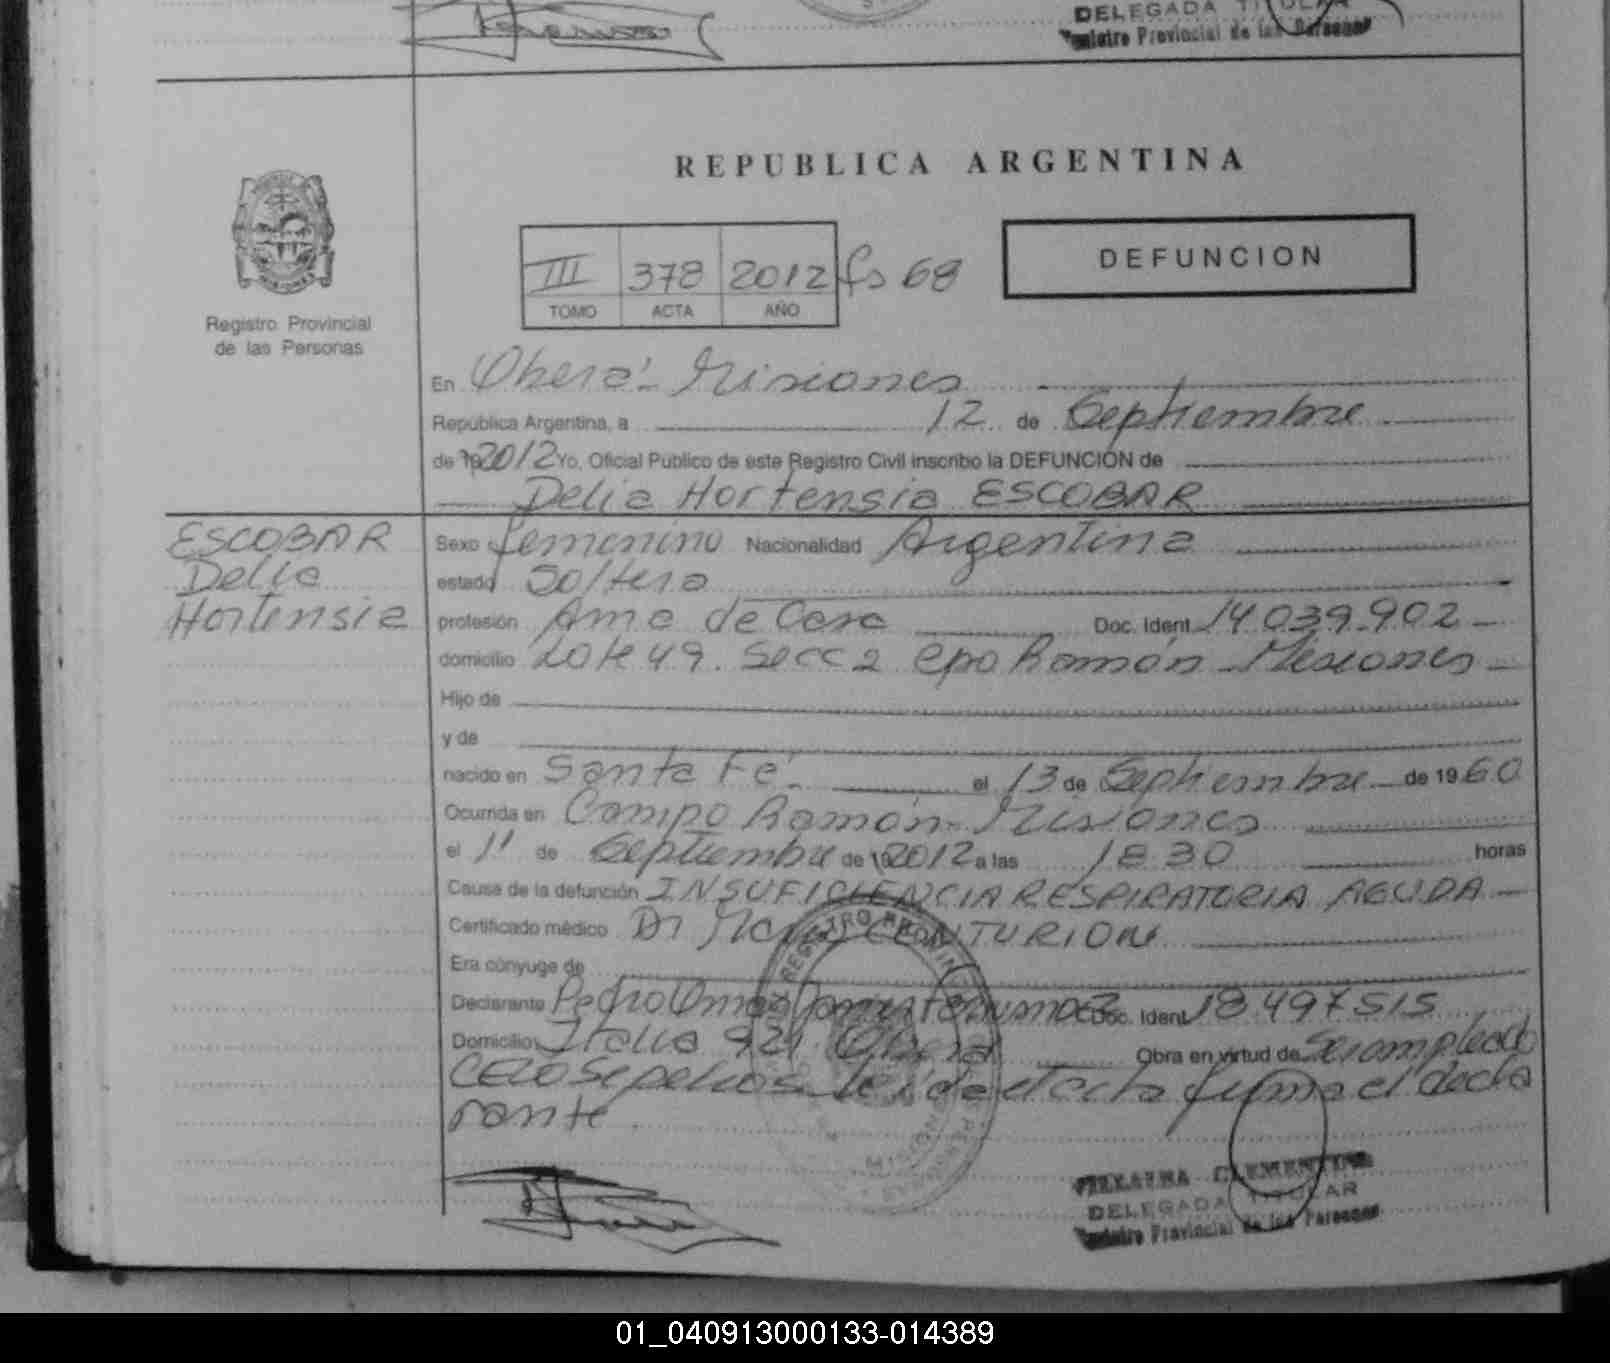 DELEGADA TITULAR
Registro Provincial de las Personas
REPUBLICA ARGENTINA
DEFUNCION
III 378 2012 fs 68
TOMO ACTA AÑO
Registro Provincial
de las Personas
En Oberá - Misiones
República Argentina, a 12 de Septiembre
de 2012 Yo, Oficial Público de este Registro Civil inscribo la DEFUNCIÓN de
Delia Hortensia ESCOBAR
ESCOBAR
Delia
Hortensia
Sexo femenino Nacionalidad Argentina
estado Soltera
profesión Ama de Casa Doc. Ident. 14.039.902
domicilio Lote 49. Secc 2 Cpo Ramón - Misiones
Hijo de
y de
nacido en Santa Fé el 13 de Septiembre de 1960
Ocurrida en Campo Ramón - Misiones
el 11 de Septiembre de 2012 a las 18.30 horas
Causa de la defunción INSUFICIENCIA RESPIRATORIA AGUDA
Certificado médico Dr CENTURION
Era cónyuge de
Declarante Pedro Omar Doc. Ident. 18.497515
Domicilio Italia 921 Oberá Obra en virtud de Ser empleado
CELO Sepelios leída el acta firma el decla
rante
VILLALBA CLEMENTINA
DELEGADA TITULAR
Registro Provincial de las Personas
01_040913000133-014389